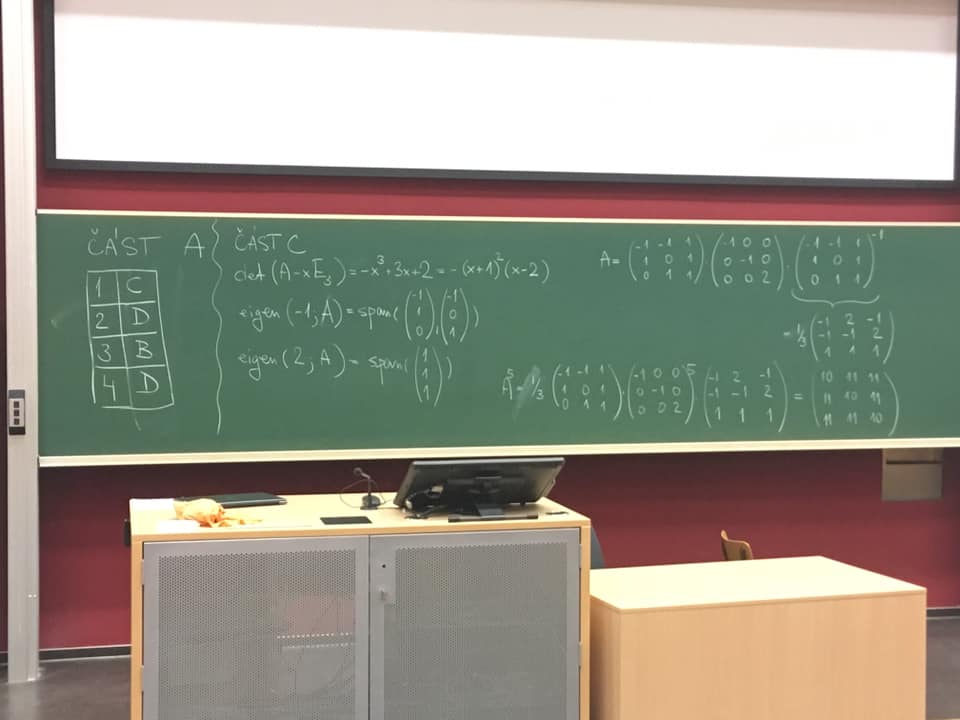 ČÁST A
1 C
2 D
3 B
4 D
ČÁST C
det (A-xE₃) = -x³+3x+2 = -(x+1)²(x-2)
eigen (-1; A) = span( (-1 1 0), (-1 0 1) )
eigen (2; A) = span( (1 1 1) )
A = (-1 -1 1 / 1 0 1 / 0 1 1) · (-1 0 0 / 0 -1 0 / 0 0 2) · (-1 -1 1 / 1 0 1 / 0 1 1)⁻¹
= 1/3 (-1 2 -1 / -1 -1 2 / 1 1 1)
A⁵ = 1/3 (-1 -1 1 / 1 0 1 / 0 1 1) · (-1 0 0 / 0 -1 0 / 0 0 2)⁵ · (-1 2 -1 / -1 -1 2 / 1 1 1) = (10 11 11 / 11 10 11 / 11 11 10)